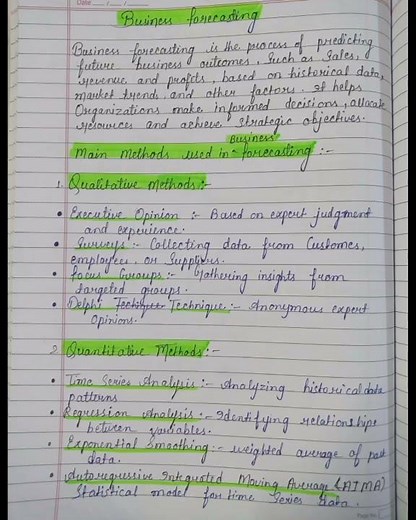 Date
Business forecasting
Business forecasting is the process of predicting
future business outcomes, such as sales,
revenue and profits, based on historical data,
market trends and other factors. It helps
Organizations make informed decisions, allocate
resources and achieve strategic objectives.
Business
Main Methods used in forecasting :-
1. Qualitative Methods :-
• Executive Opinion :- Based on expert judgment
and experience.
• Surveys :- Collecting data from Customers,
employees, or Suppliers.
• Focus Groups :- Gathering insights from
targeted groups.
• Delphi Technique :- Anonymous expert
Opinions.
2. Quantitative Methods :-
• Time Series Analysis :- Analyzing historical data
patterns
• Regression Analysis :- Identifying relationships
between variables.
• Exponential Smoothing :- weighted average of past
data.
• Autoregressive Integrated Moving Average (AIMA)
Statistical model for time Series data.